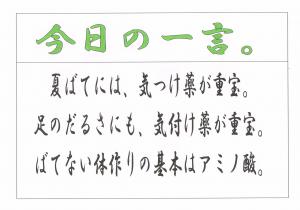 今日の一言。
夏ばてには、気つけ薬が重宝。
足のだるさにも、気付け薬が重宝。
ばてない体作りの基本はアミノ酸。